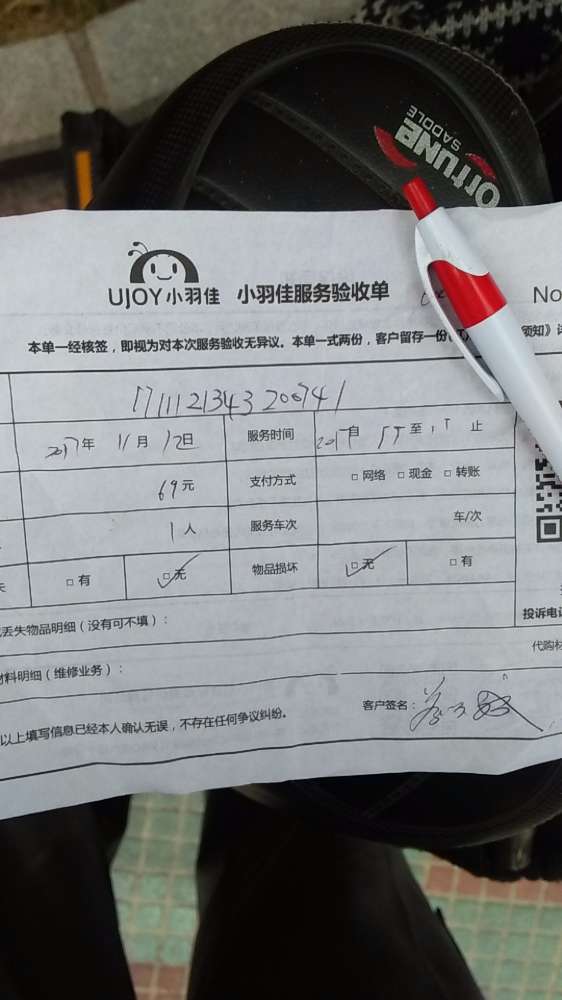 FORTUNE
SADDLE
UJOY小羽佳 小羽佳服务验收单 No
本单一经核签，即视为对本次服务验收无异议。本单一式两份，客户留存一份 须知》
1711121343200741
2017年 11月 12日 服务时间 至 止
69元 支付方式 □网络 □现金 □转账
1人 服务车次 车/次
□有 □无 物品损坏 □无 □有
丢失物品明细（没有可不填）：
投诉电
材料明细（维修业务）：
代购
以上填写信息已经本人确认无误，不存在任何争议纠纷。
客户签名：